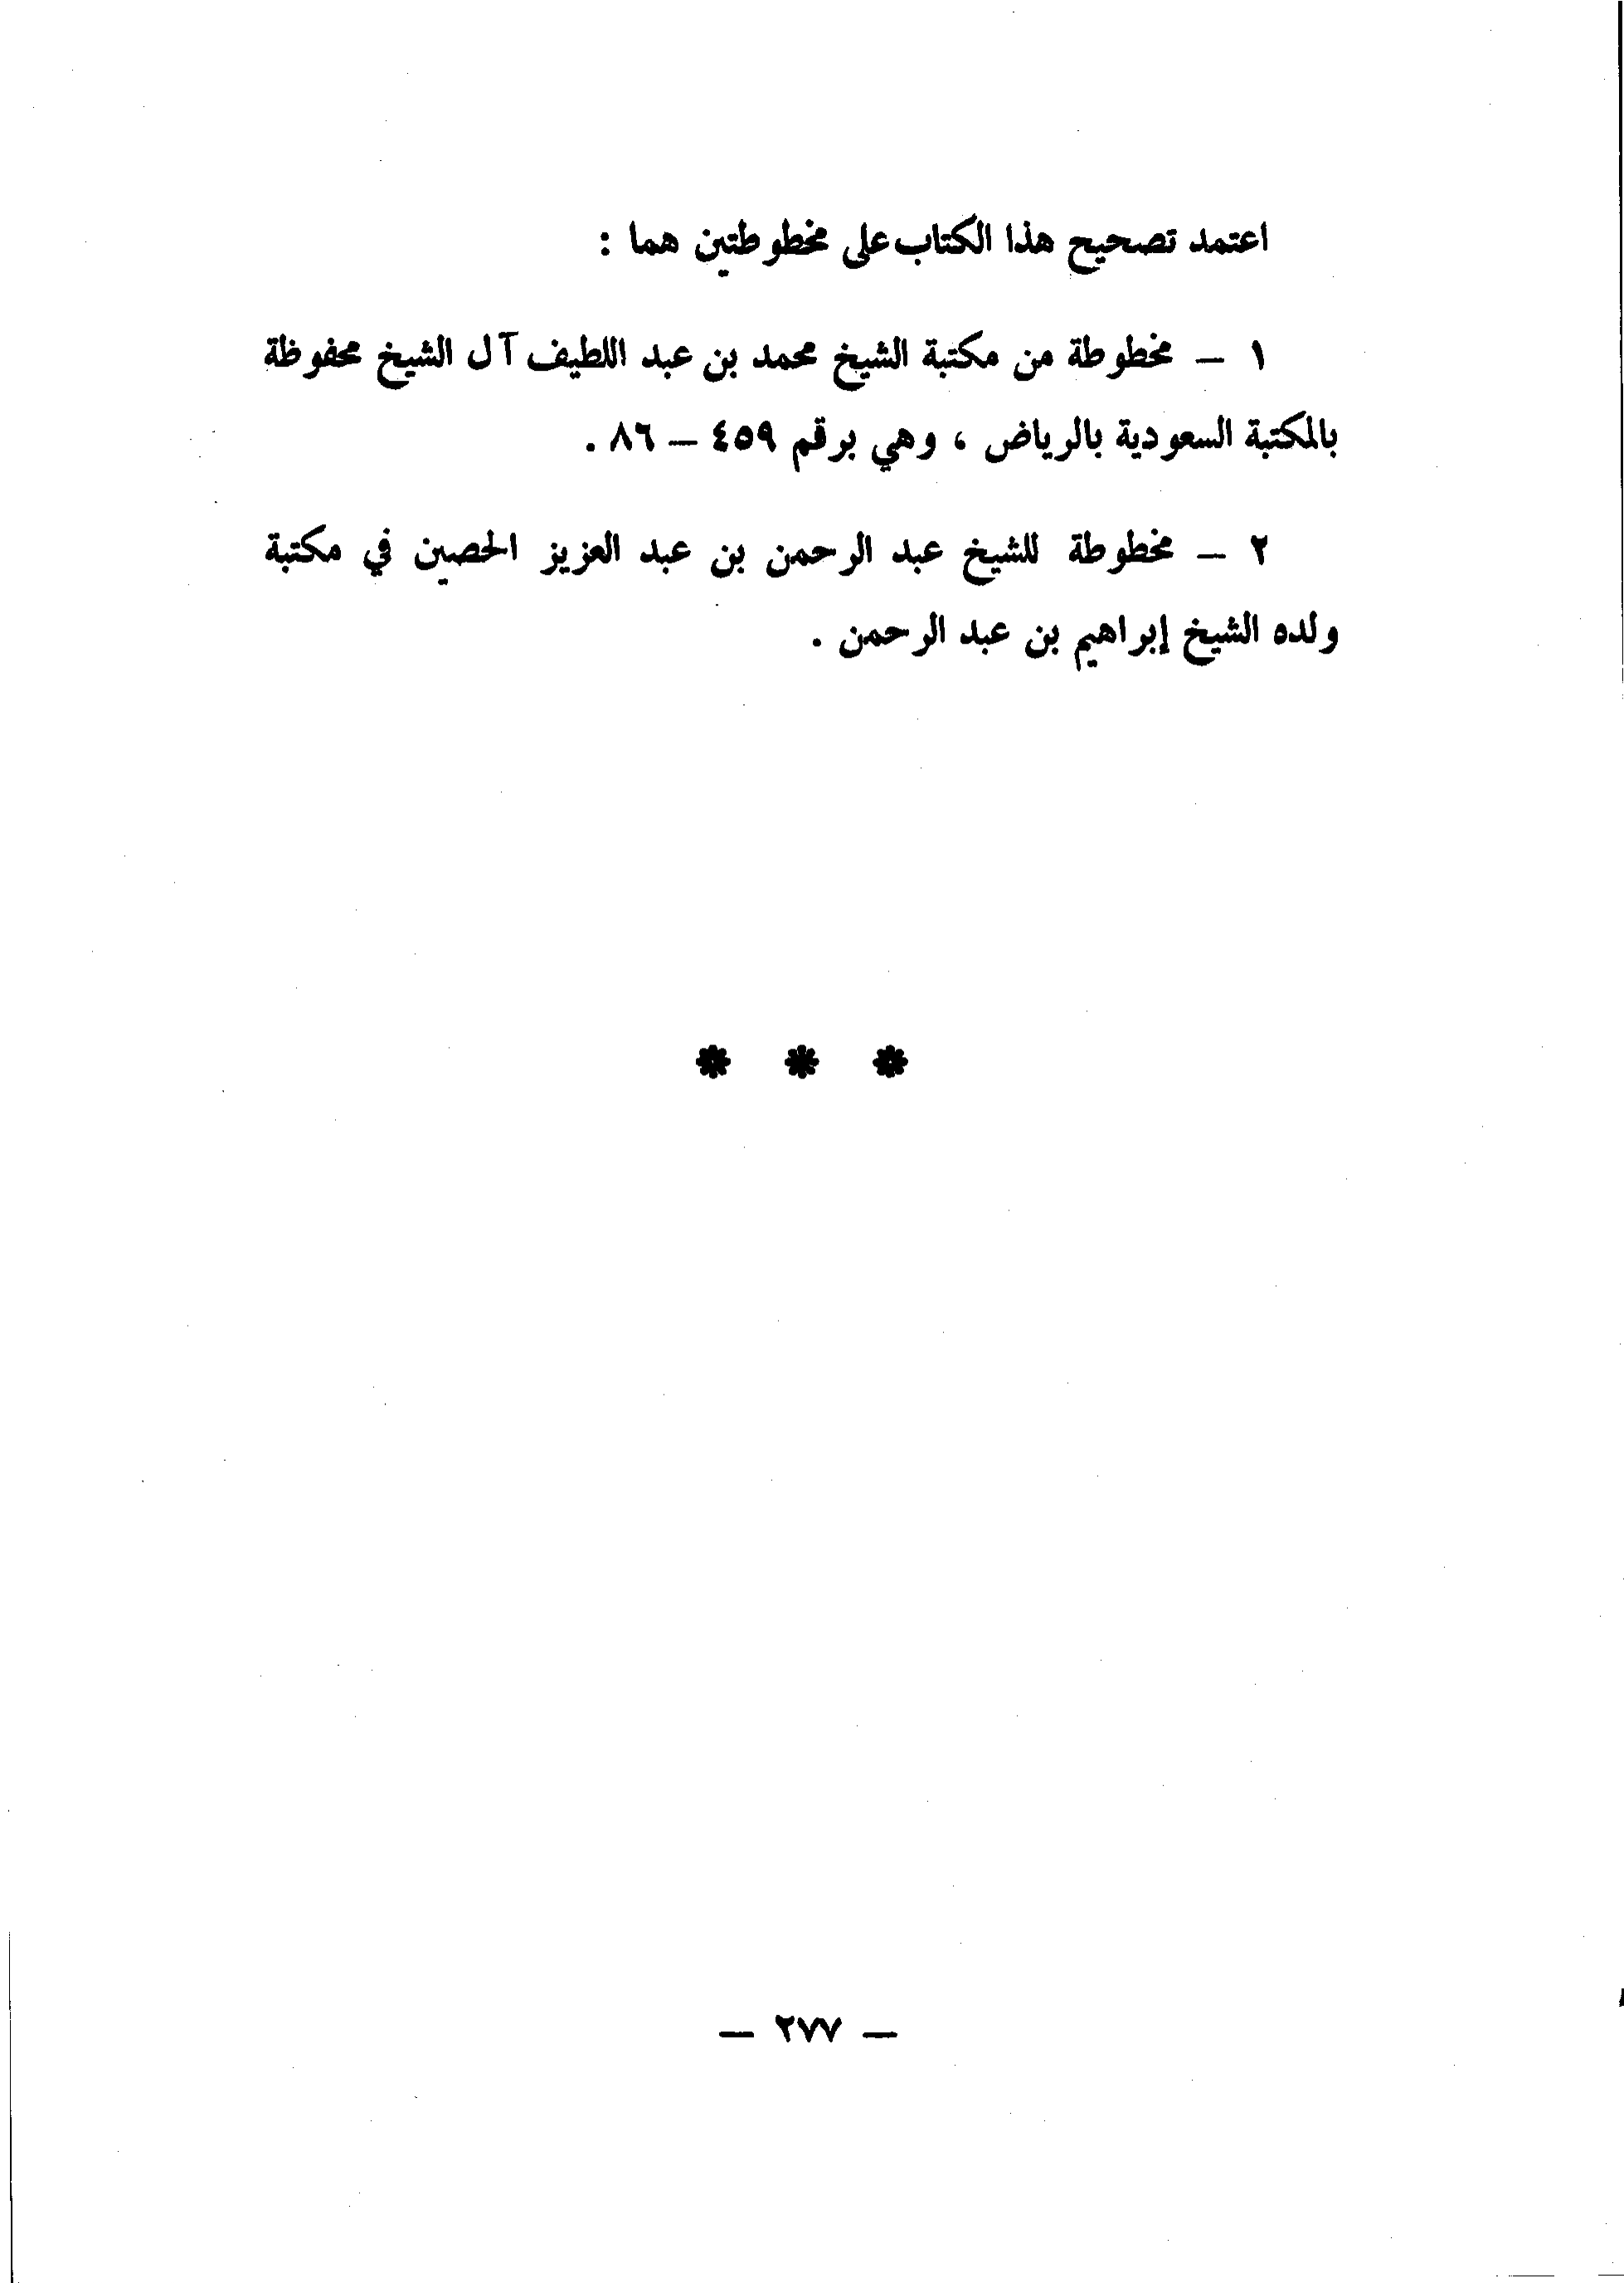 اعتمد تصحيح هذا الكتاب على مخطوطتين هما :
١ – مخطوطة من مكتبة الشيخ محمد بن عبد اللطيف آل الشيخ محفوظة
بالمكتبة السعودية بالرياض ، وهي برقم ٤٥٩ – ٨٦ .
٢ – مخطوطة للشيخ عبد الرحمن بن عبد العزيز الحصين في مكتبة
ولده الشيخ إبراهيم بن عبد الرحمن .
* * *
– ٢٧٧ –